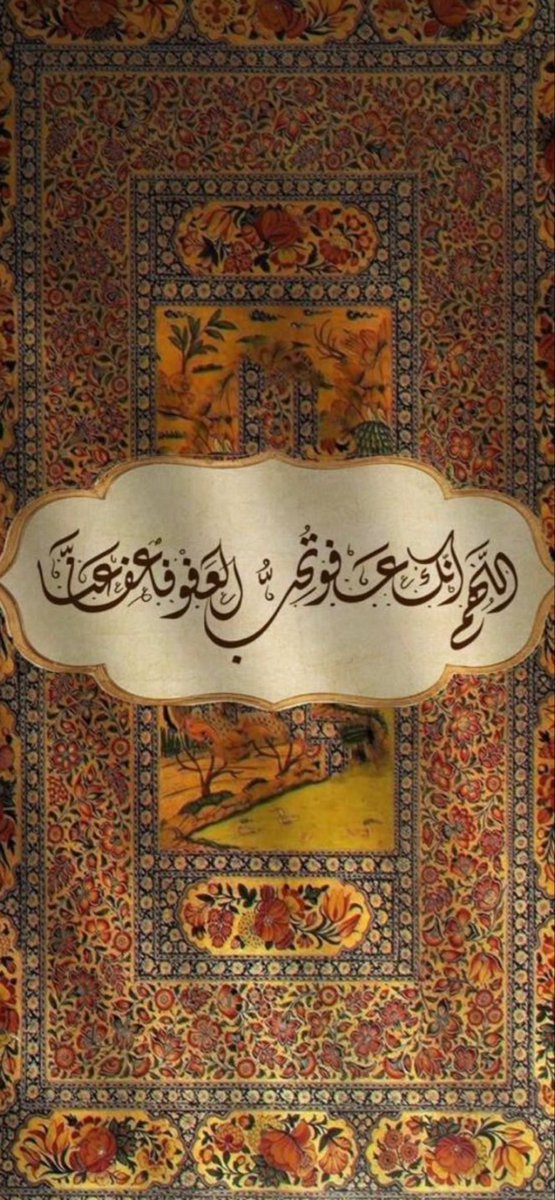 اللَّهم إنك عفو تُحبُّ العفو فاعفُ عنَّا